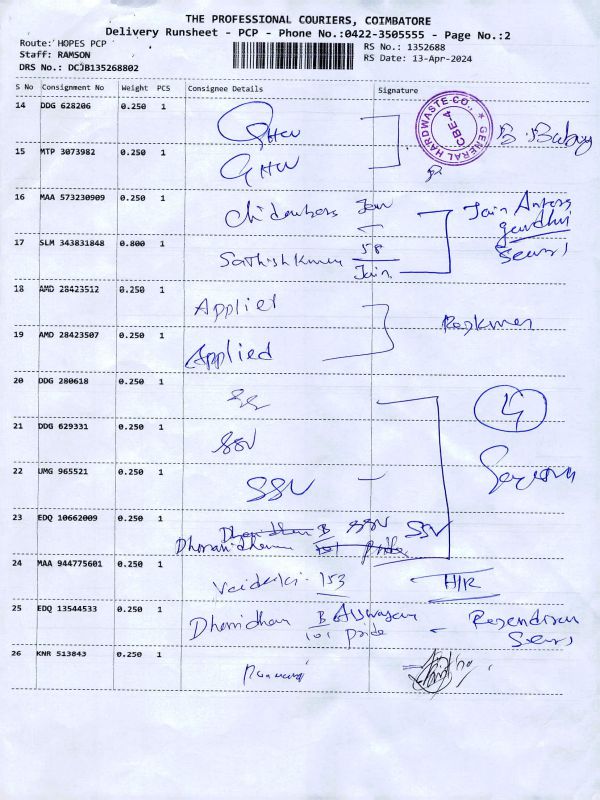 THE PROFESSIONAL COURIERS, COIMBATORE
Delivery Runsheet - PCP - Phone No.:0422-3505555 - Page No.:2
Route: HOPES PCP
RS No.: 1352688
Staff: RAMSON
RS Date: 13-Apr-2024
DRS No.: DCJB135268802
S No Consignment No Weight PCS Consignee Details Signature
14 DDG 628206 0.250 1 GHW
GENERAL HARDWASTE-CO., CBE-4
B. Babu
15 MTP 3073982 0.250 1 GHW
16 MAA 573230909 0.250 1 Jain
17 SLM 343831848 0.800 1 Sathishkumar 58 Jain
18 AMD 28423512 0.250 1 Applied
19 AMD 28423507 0.250 1 Applied
20 DDG 280618 0.250 1
4
21 DDG 629331 0.250 1 SSV
22 UMG 965521 0.250 1 SSV
23 EDQ 10662009 0.250 1 SSV SSV
24 MAA 944775601 0.250 1 153 H/R
25 EDQ 13544533 0.250 1 B
101 Pride
26 KNR 513843 0.250 1